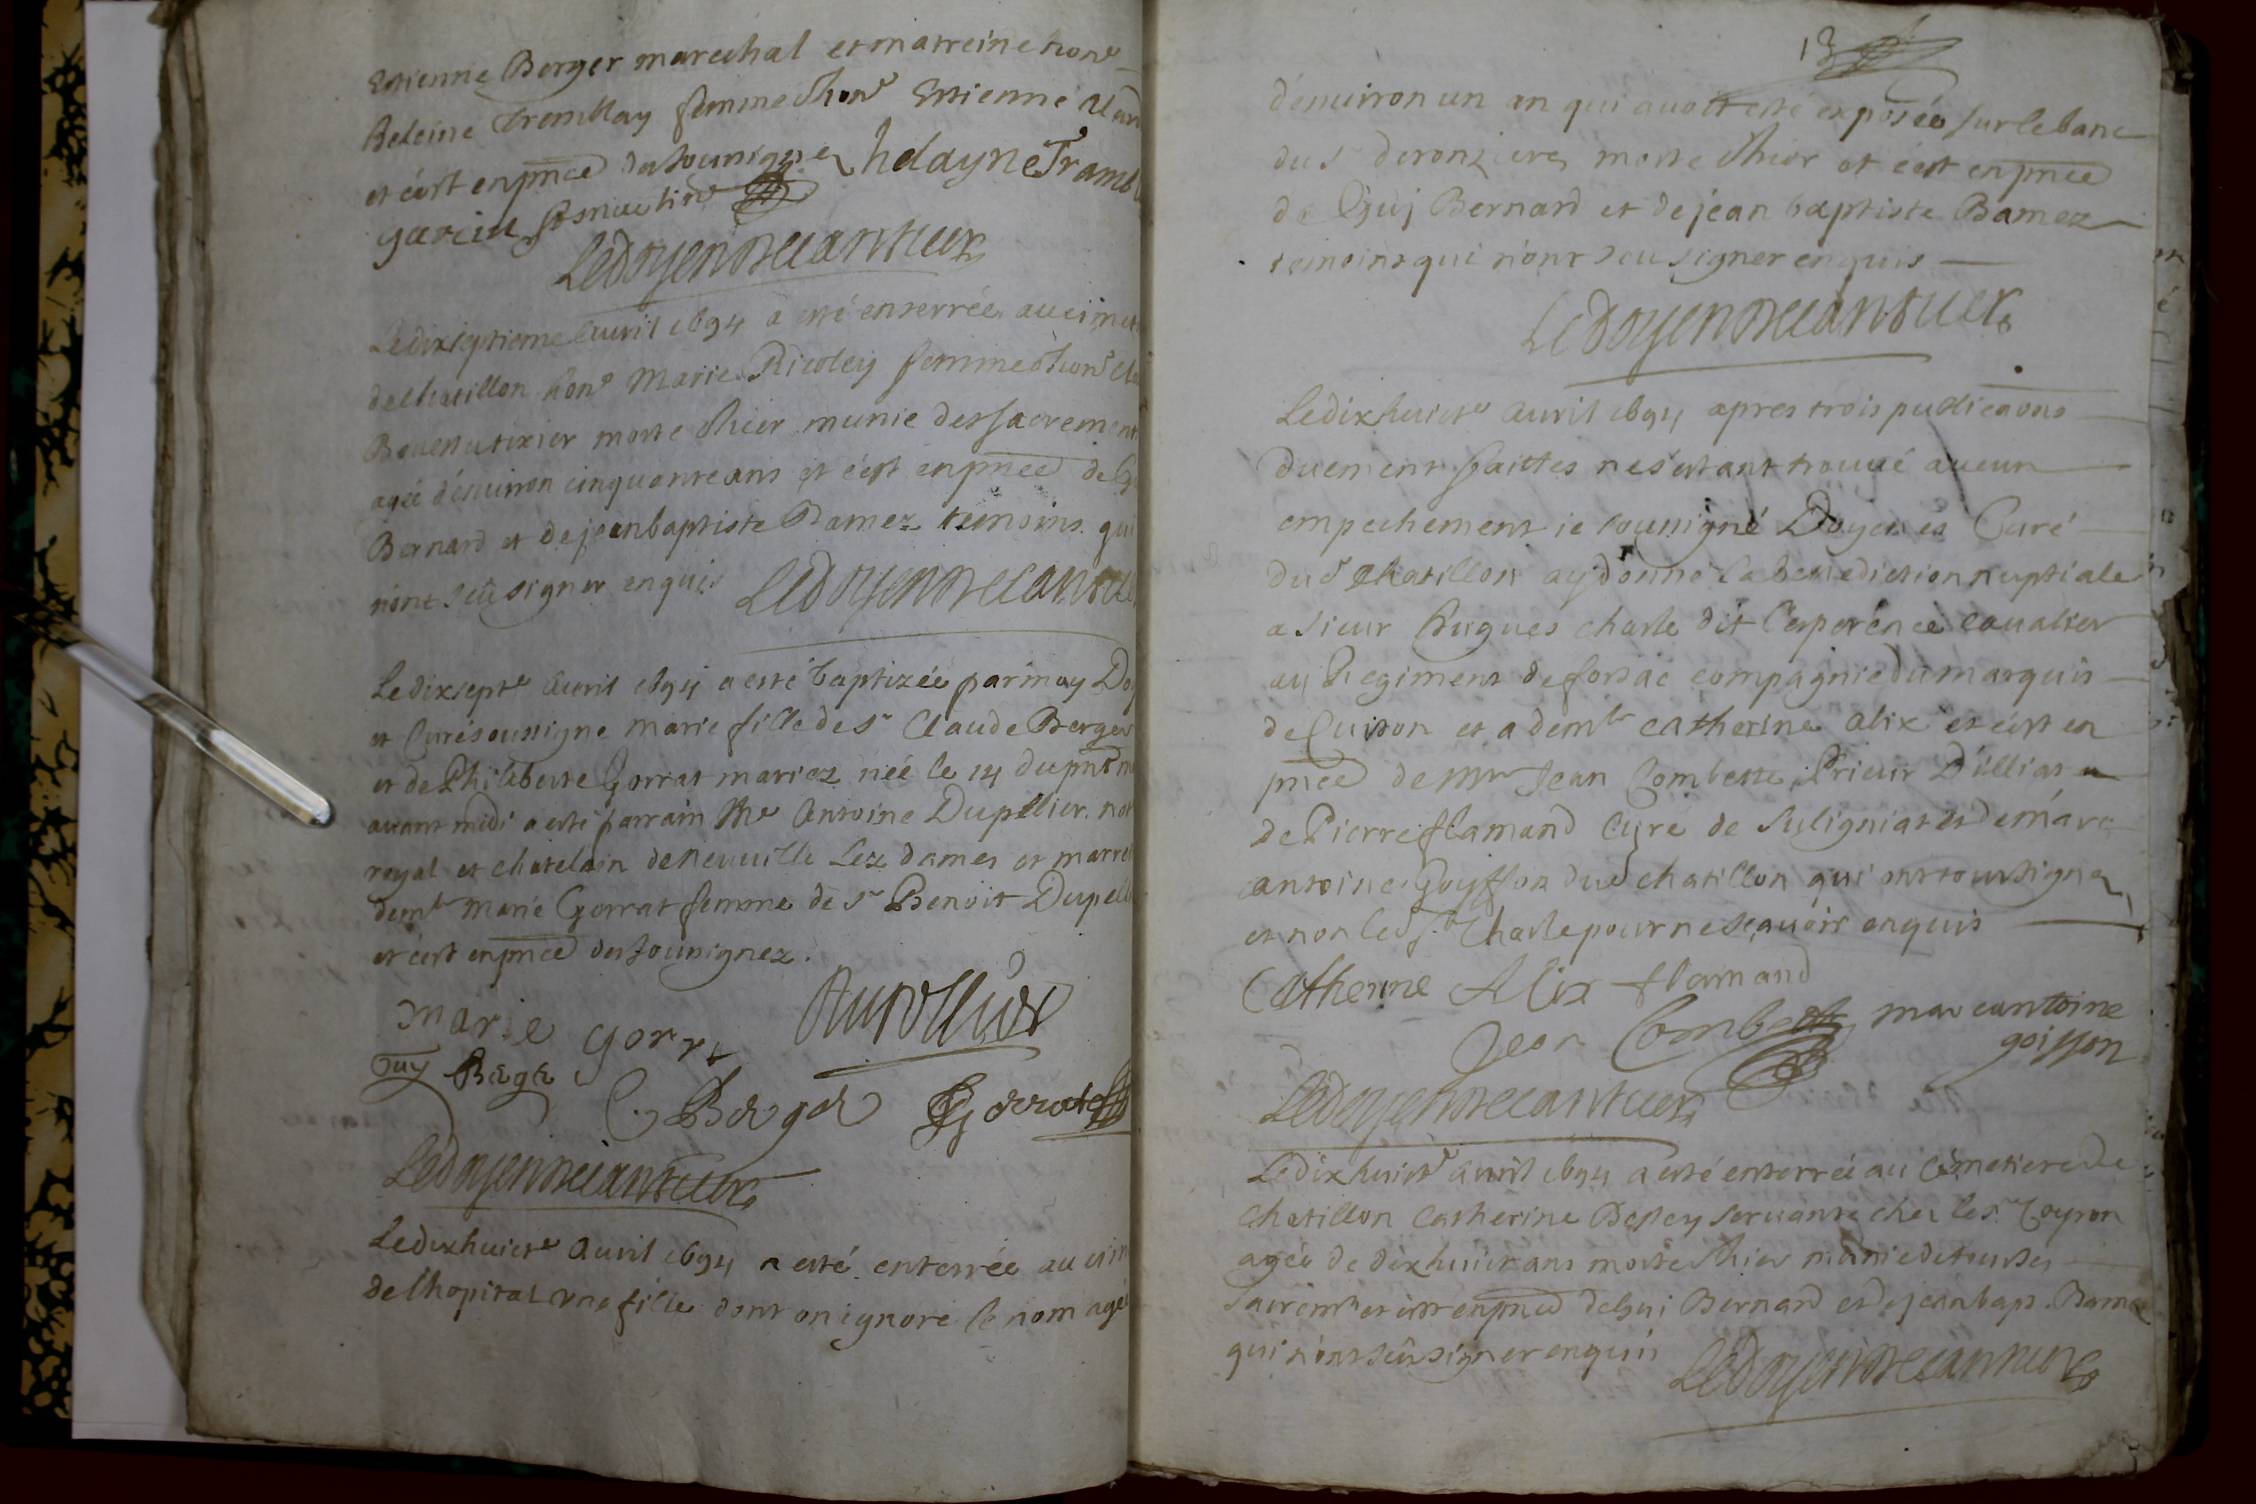 Estienne Berger marechal et marreine hon^e
Heleine Tremblay femme d'hon^e Estienne Alard
et c'est en pnce des soussignez helayne Trambl
garein
Ledoyen
Le dixseptieme Avril 1694 a esté enterrée au cimet
de Chatillon hon^e Marie Nicoley femme d'hon^e Cla
morte d'hier munie des sacremen
agée d'environ cinquante ans et c'est en pnce de G
Bernard et de jean baptiste Bamez temoins qui
n'ont sceu signer enquis Ledoyen
Le dixsept^e Avril 1694 a esté baptizée par moy Do
et Curé soussigné Marie fille de s^r Claude Berger
et de Philiberte Gorrat mariez née le 14 du pnt m
avant midi a esté parrain M^e Antoine Dupellier not
royal et chatelain de Neuville lez Dames et marre
dem^lle Marie Gorrat femme de s^r Benoit Dupelli
et c'est en pnce des soussignez.
marie gorra
guy Bergé
C. Berger Gorrat
Ledoyen
Le dixhuict^e Avril 1694 a esté enterrée au cim
de l'hopital une fille dont on ignore le nom agée
13
d'environ un an qui avoit esté exposée sur le banc
du s^r morte d'hier et c'est en pnce
de Guj Bernard et de jean baptiste Bamez
temoins qui n'ont sceu signer enquis
Ledoyen
Le dixhuict^e Avril 1694 apres trois publicaons
duement faittes ne s'estant trouvé aucun
empechement ie soussigné Doyen et Curé
dud Chatillon ay donné la benediction nuptiale
a sieur Hugues Charle dit l'esperence cavalier
au Regiment de forsac compagnie du marquis
de Cuison et a dem^lle Catherine Alix et c'est en
pnce de M^re Jean Combette Prieur D'illiat
de Pierre flamand Curé de Suligniat et de marc
antoine Goyffon dud Chatillon qui ont tous signez
et non led s^r Charle pour ne sçavoir enquis
Catherine Alix flamand
Jean Combette marcantoine
goiffon
Ledoyen
Le dixhuict^e Avril 1694 a esté enterrée au Cimetiere de
Chatillon Catherine servante chez le s^r
agée de dixhuict ans morte d'hier munie de tous les
sacrem^ts et c'est en pnce de Gui Bernard et de jean bap. Bamez
qui n'ont sceu signer enquis Ledoyen